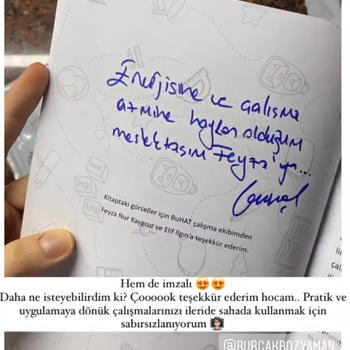 Enerjisine ve çalışma
azmine hayran olduğum
meslektaşım Feyza'ya...
Kitaptaki görseller için BuHAT çalışma ekibimden
Feyza Nur Kaygusuz ve Elif Ilgın'a teşekkür ederim.
Hem de imzalı 😍😍
Daha ne isteyebilirdim ki? Çoooook teşekkür ederim hocam.. Pratik ve
uygulamaya dönük çalışmalarınızı ileride sahada kullanmak için
sabırsızlanıyorum 👩🏻‍🎓
@BURCAKBOZYAMAN